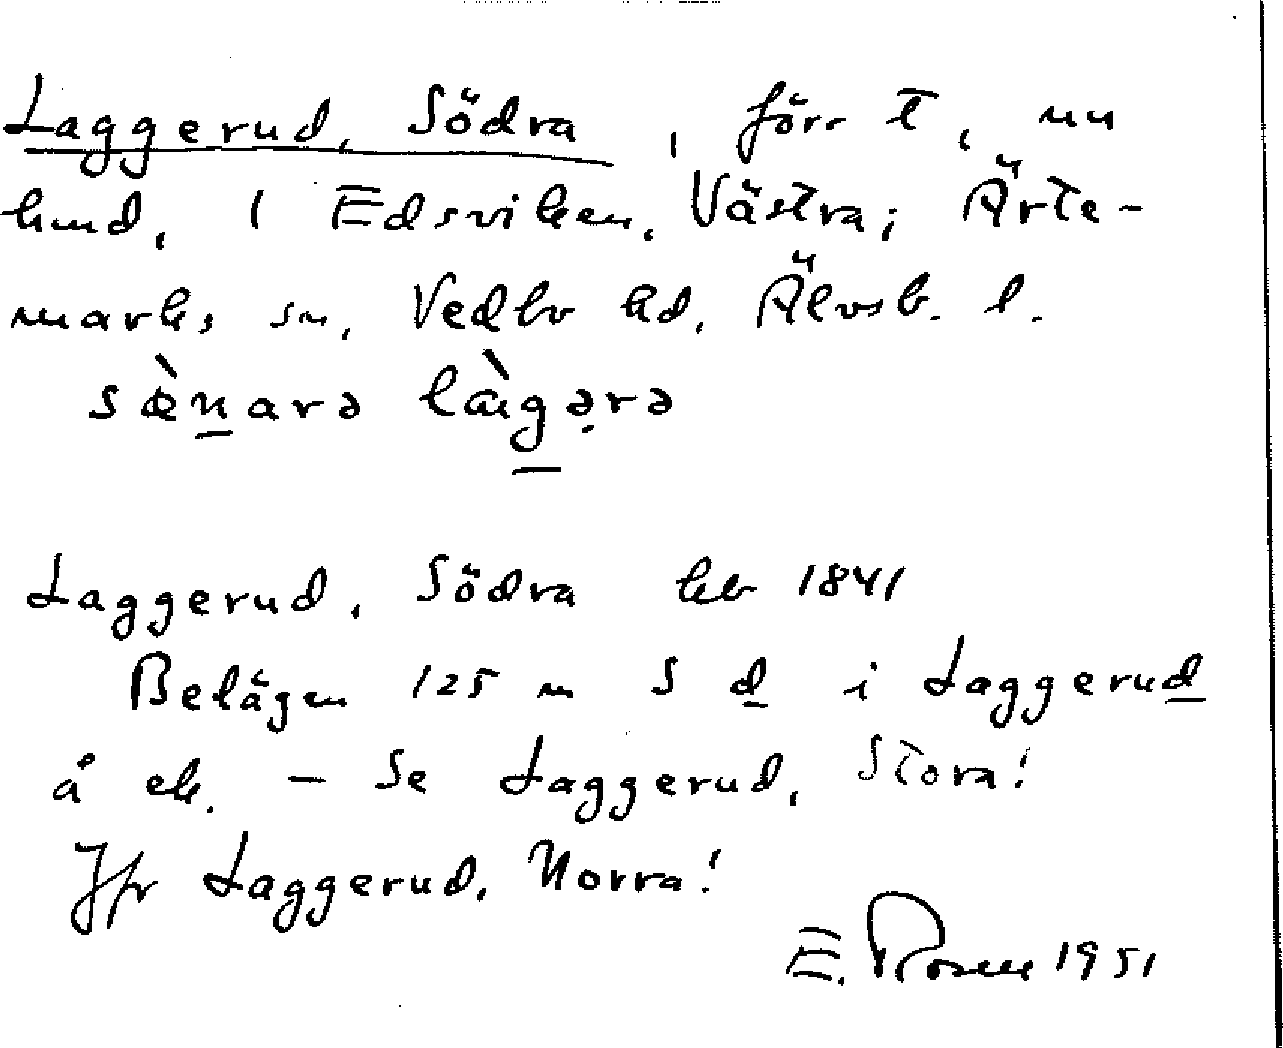 Laggerud, Södra, förr t, nu
hmd, i Edsviken, Västra; Ärte-
marks sn, Vedbo hd, Älvsb. l.
sæ̀n̲arə læ̀g̲ə̣rə
Laggerud, Södra heb 1841
Belägen 125 m S d̲ i Laggerud̲
å ek. – Se Laggerud, Stora!
Jfr Laggerud, Norra!
E. Rosell 1951